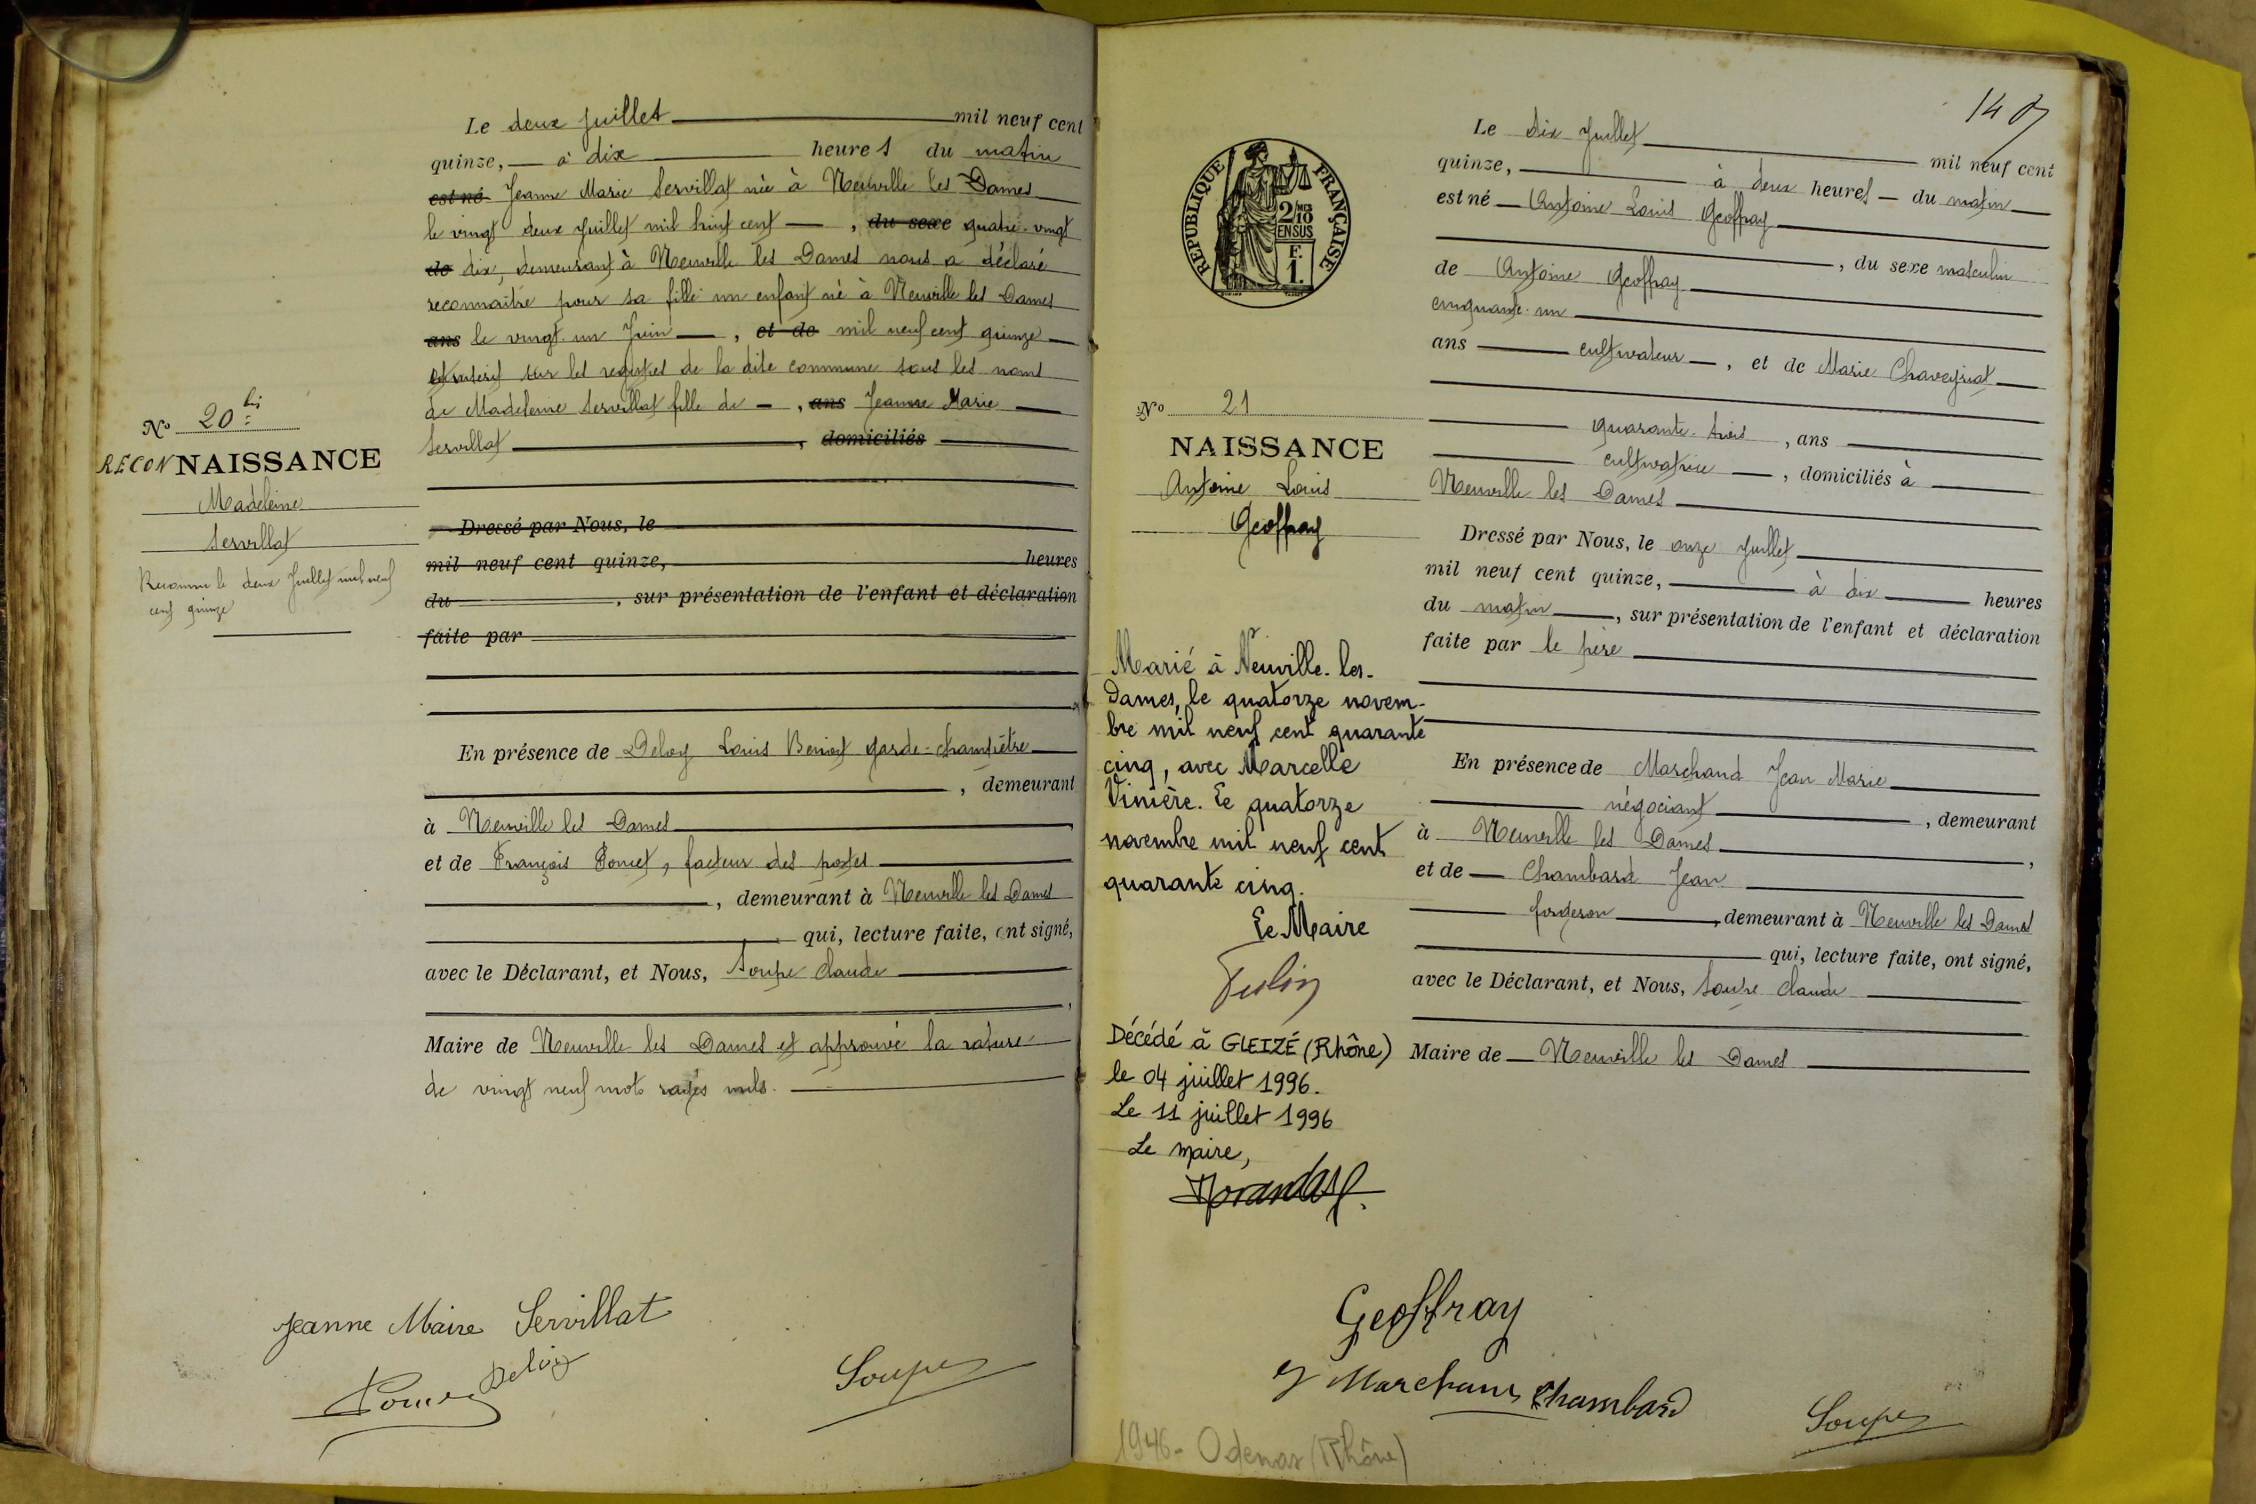 Le deux juillet mil neuf cent
quinze, à dix heures du matin
est né Jeanne Marie Servillat née à Neuville les Dames
le vingt deux juillet mil huit cent, du sexe quatre-vingt
de dix, demeurant à Neuville les Dames nous a déclaré
reconnaitre pour sa fille un enfant né à Neuville les Dames
ans le vingt un Juin, et de mil neuf cent quinze
et inscrit sur les registres de la dite commune sous les noms
de Madeleine Servillat fille de, ans Jeanne Marie
Servillat, domiciliés
Dressé par Nous, le
mil neuf cent quinze, heures
du, sur présentation de l'enfant et déclaration
faite par
En présence de Deloy Louis Benoit garde-champêtre
, demeurant
à Neuville les Dames
et de François Poncet, facteur des postes
, demeurant à Neuville les Dames
qui, lecture faite, ont signé,
avec le Déclarant, et Nous, Soupe Claude
,
Maire de Neuville les Dames et approuvé la rature
de vingt neuf mots rayés nuls.
No 20 bis
RECONNAISSANCE
Madeleine
Servillat
Reconnu le deux Juillet mil neuf
cent quinze
Jeanne Maire Servillat
Deloy
Soupe
14
RÉPUBLIQUE FRANÇAISE
2/10
EN SUS
F.
1.
No 21
NAISSANCE
Antoine Louis
Geoffray
Marié à Neuville-les-
Dames, le quatorze novem-
bre mil neuf cent quarante
cinq, avec Marcelle
Vinière. Le quatorze
novembre mil neuf cent
quarante cinq.
Le Maire
Décédé à GLEIZÉ (Rhône)
le 04 juillet 1996.
Le 11 juillet 1996
Le maire,
Le dix Juillet mil neuf cent
quinze, à deux heures du matin
est né Antoine Louis Geoffray
, du sexe masculin
de Antoine Geoffray
cinquante-un
ans cultivateur, et de Marie Chaveyriat
quarante-trois, ans
cultivatrice, domiciliés à
Neuville les Dames
Dressé par Nous, le onze Juillet
mil neuf cent quinze, à dix heures
du matin, sur présentation de l'enfant et déclaration
faite par le père
En présence de Marchand Jean Marie
négociant, demeurant
à Neuville les Dames,
et de Chambard Jean
forgeron, demeurant à Neuville les Dames
qui, lecture faite, ont signé,
avec le Déclarant, et Nous, Soupe Claude
Maire de Neuville les Dames
Geoffray
Marchand Chambard
Soupe
1946 - Odenas (Rhône)